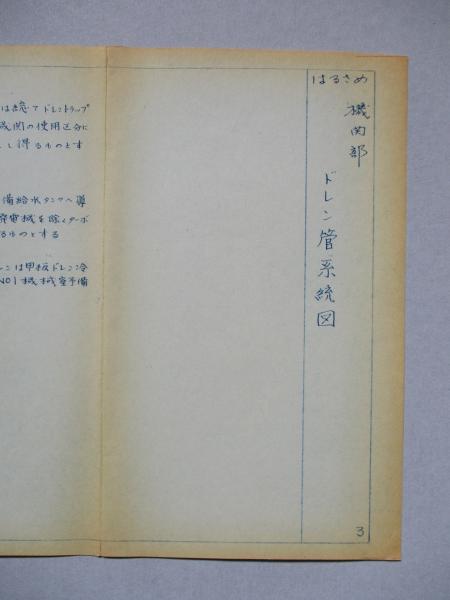 はるさめ
機関部
ドレン管系統図
3
は総てドレントラップ
機関の使用区分に
し得るものとす
備給水タンクへ導
発電機を除くターボ
るものとする
レンは甲板ドレン冷
NO1機械室予備